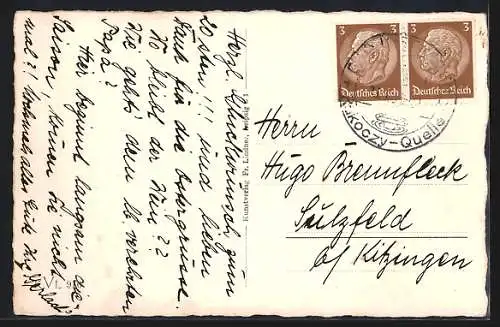 Herzl. Glückwunsch zum
20sten !!! und lieben
Dank für die Ostergrüsse.
Wo bleibt der Wein ??
Wie geht's dem lb. verehrten
Papa?
Hier beginnt langsam die
Saison, können Sie nicht
mal ?! Nochmals alles Gute Ihr
Kunstverlag Fr.
3
3
Deutsches Reich
Deutsches Reich
koczy-Quelle
Herrn
Hugo Brennfleck
Sulzfeld
b/ Kitzingen